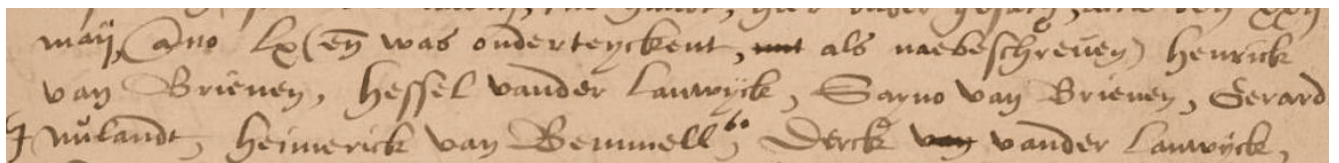 maij, Ano Lx (en̄ was onderteyckent, als naebeschreven) Henrick
van Brienen, Hessel vander Lauwijck, Sarno van Brienen, Gerard
nulandt, Heimerick van Bemmell, Derck van vander Lauwijck,